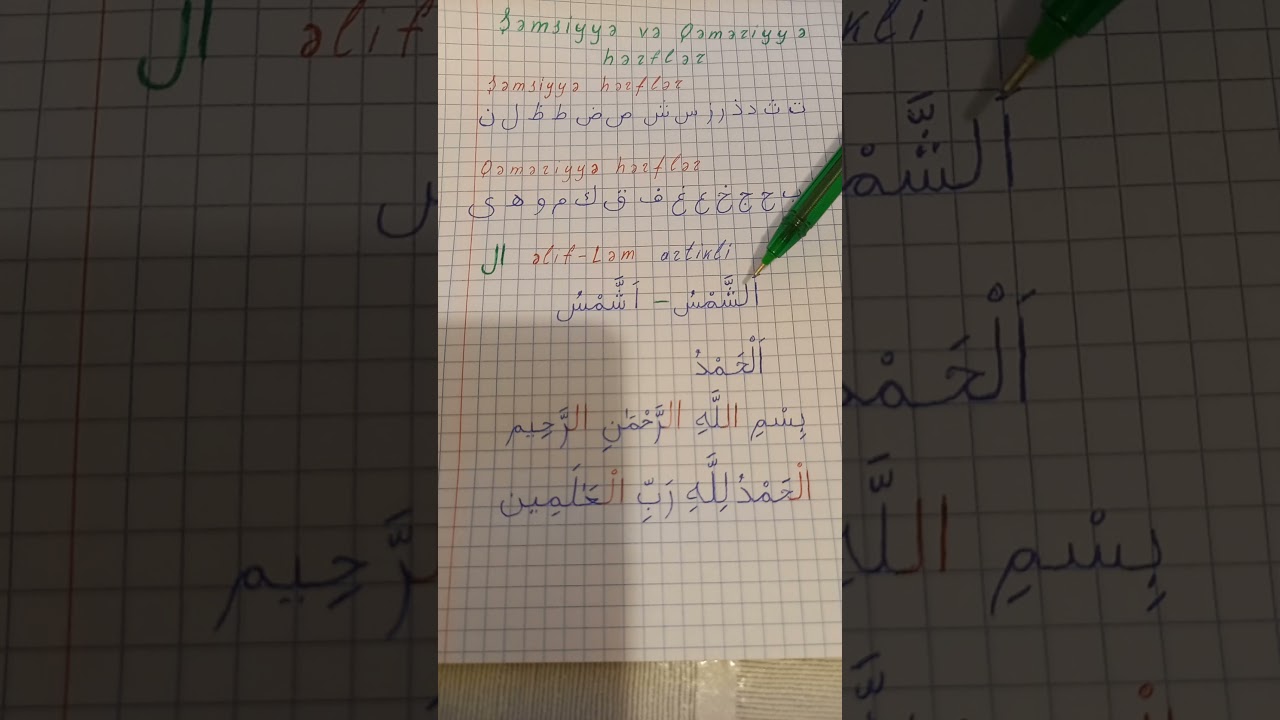 Şəmsiyyə və Qəməriyyə
hərflər
Şəmsiyyə hərflər
ت ث د ذ ر ز س ش ص ض ط ظ ل ن
Qəməriyyə hərflər
ب ج ح خ ع غ ف ق ك م و ه ي
ال əlif-Ləm artikli
اَلشَّمْسُ – اَشَّمْسُ
اَلْحَمْدُ
بِسْمِ اللَّهِ الرَّحْمٰنِ الرَّحِيم
الْحَمْدُ لِلَّهِ رَبِّ الْعَالَمِين